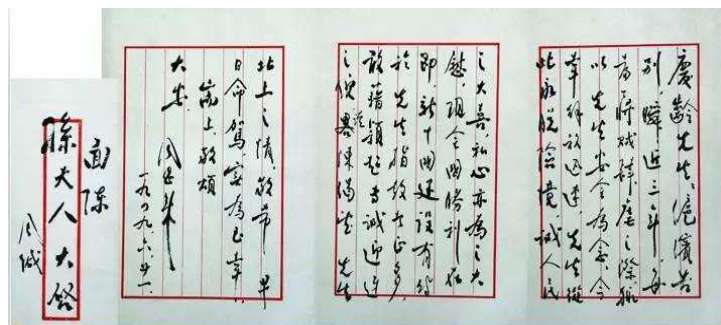 慶齡先生：滬濱告
別，瞬近三年，每
當蔣賊肆虐之際，輒
以先生安全為念。今
幸解放迅速，先生從
此永脫險境，誠人民
之大喜，私心亦為之大
慰。現全國勝利在
即，新中國建設有待
於先生指教者正多，
敢藉穎超專誠迎迓
之便，謹陳渴望先生
北上之情，敬希早
日命駕，實為至幸。
耑上，敬頌
大安！周恩來
一九四九、六、廿一、
面陳
孫夫人大啓
周緘